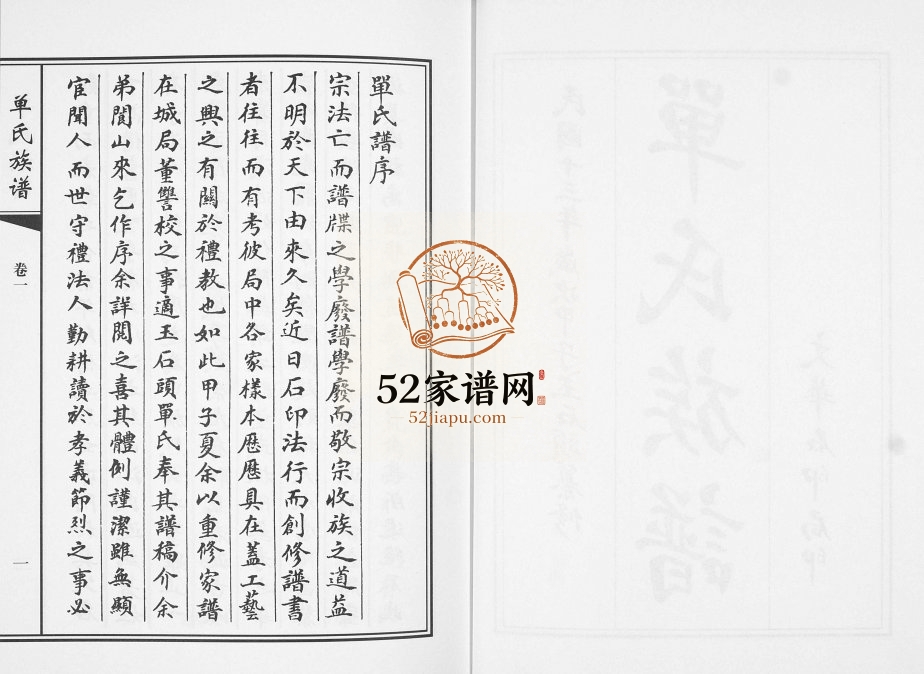 單氏譜序
宗法亡而譜牒之學廢譜學廢而敬宗收族之道益
不明於天下由來久矣近日石印法行而創修譜書
者往往而有考彼局中各家樣本歷歷具在蓋工藝
之興之有關於禮教也如此甲子夏余以重修家譜
在城局董讐校之事適玉石頭單氏奉其譜稿介余
弟閬山來乞作序余詳閱之喜其體例謹潔雖無顯
宦聞人而世守禮法人勤耕讀於孝義節烈之事必
单氏族谱
卷一
一
52家谱网
52jiapu.com
單氏族譜